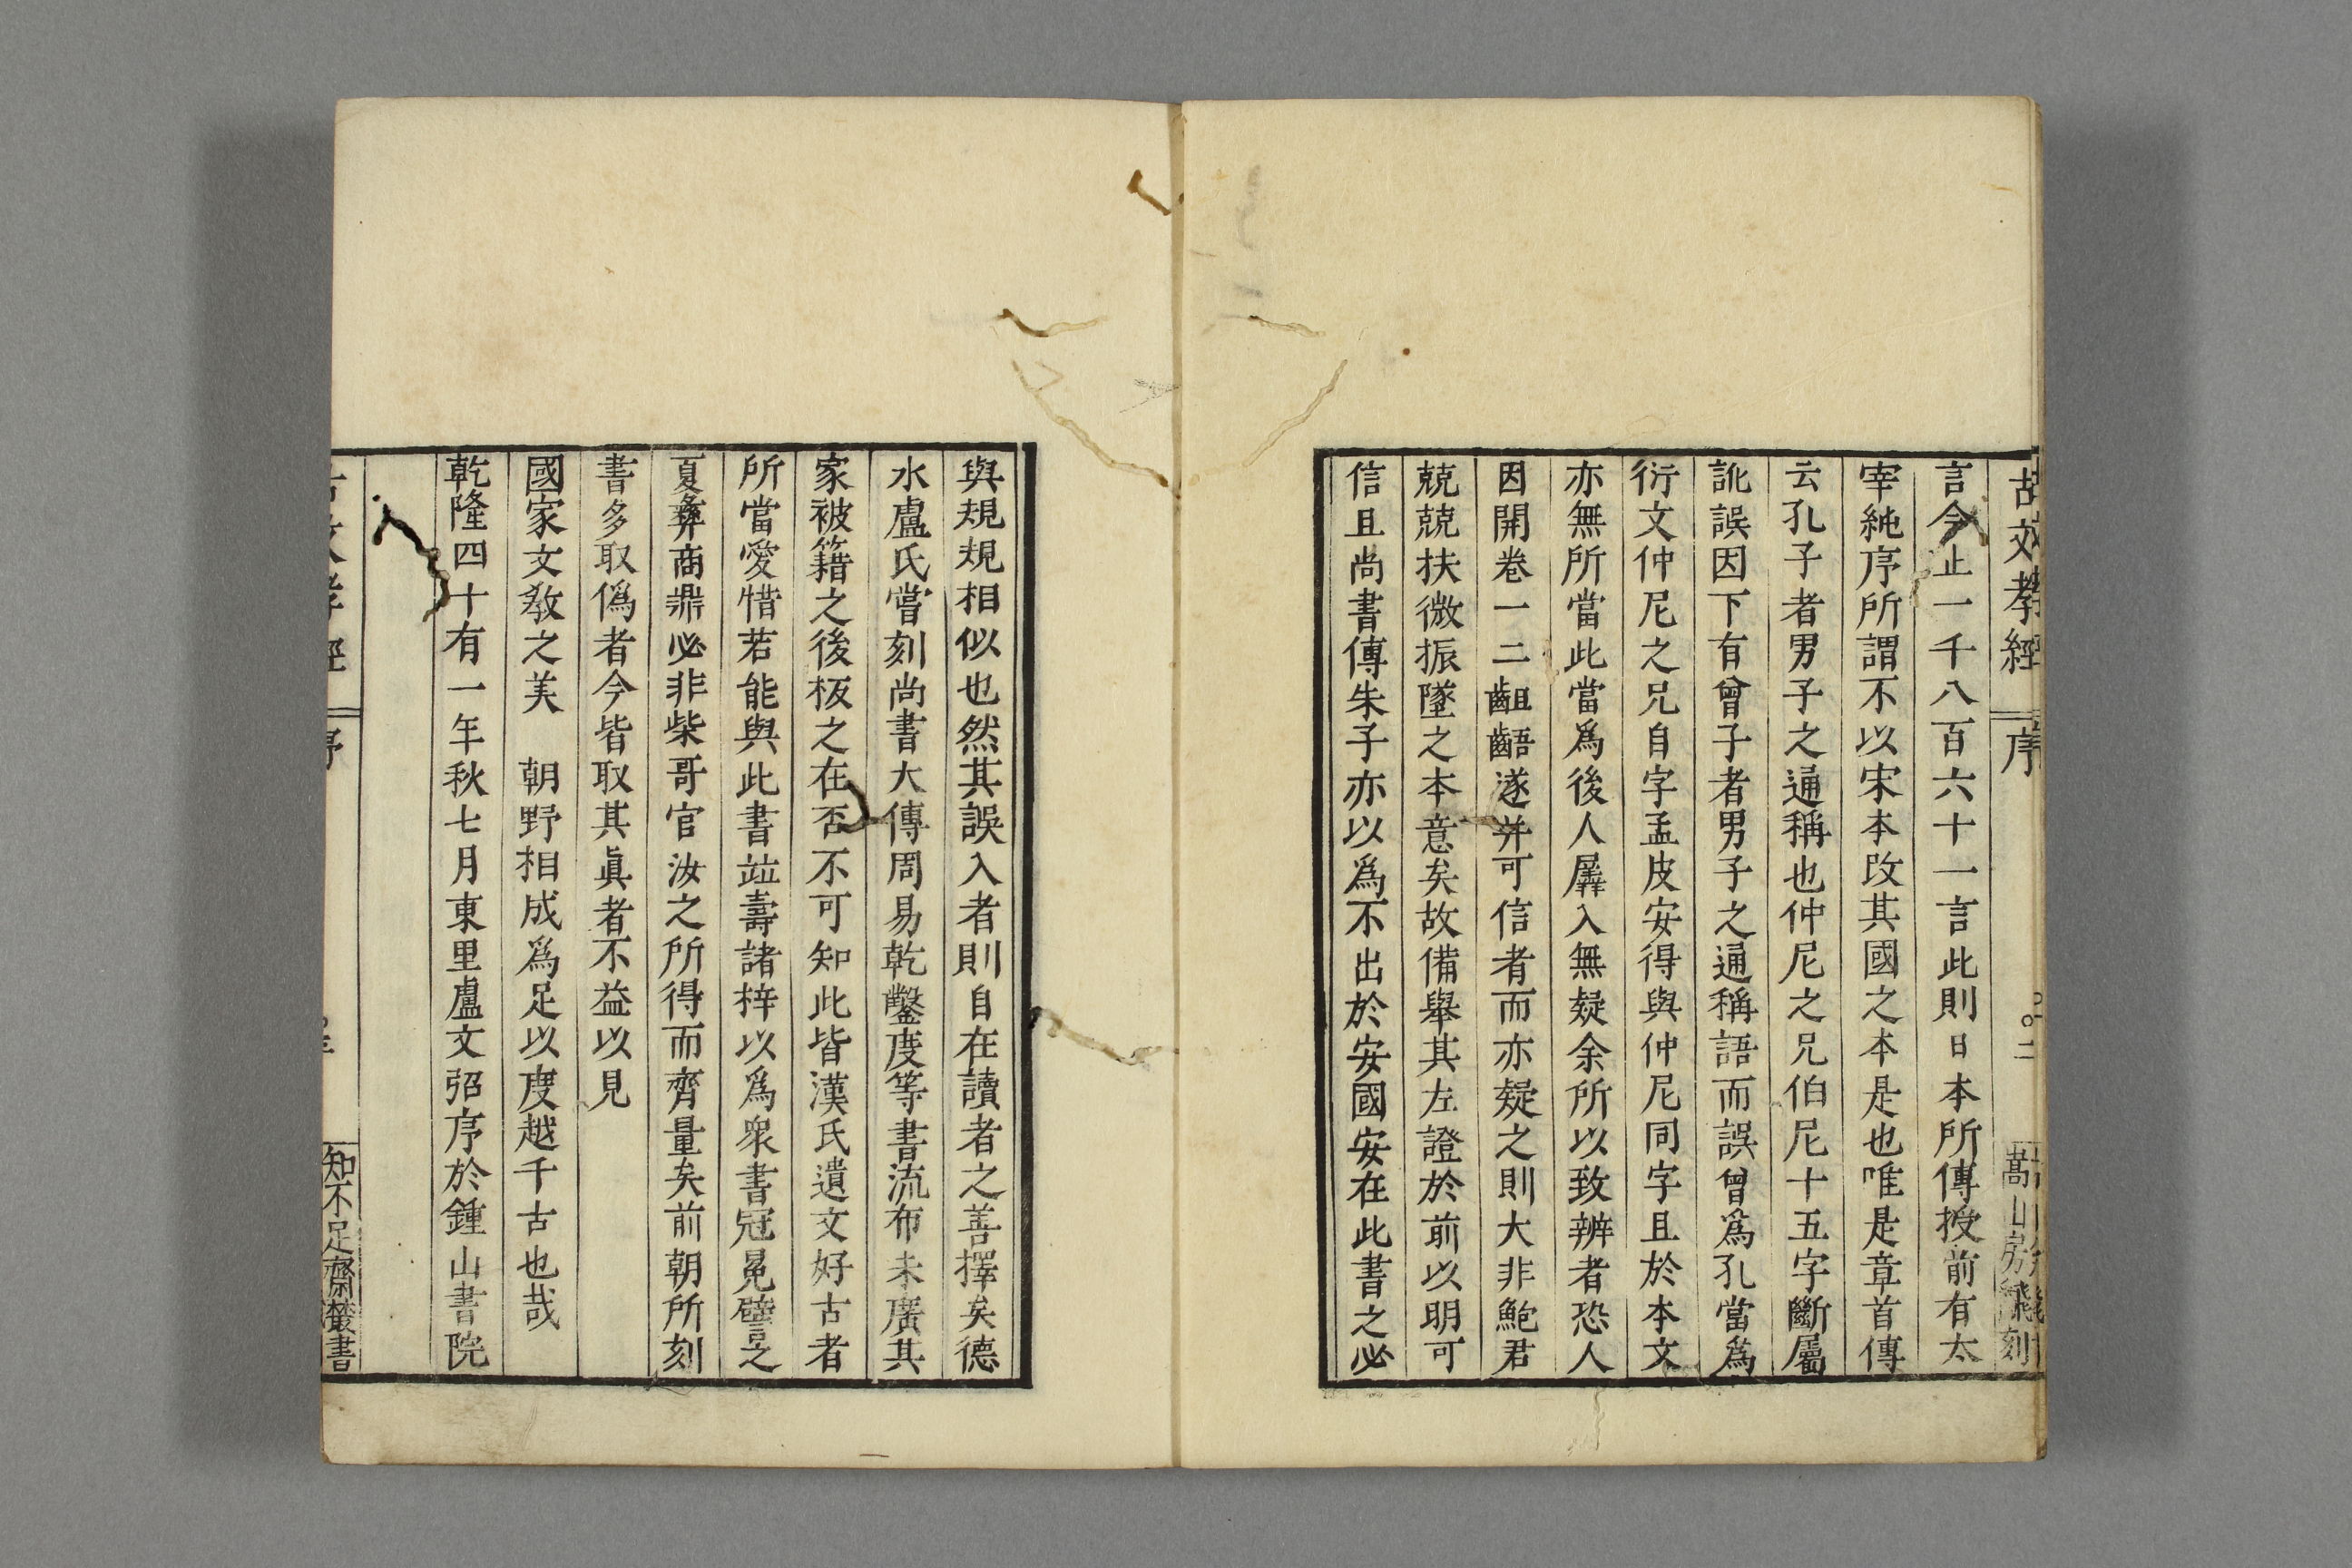 古文孝經 序 二 嵩山房飜刻
言今止一千八百六十一言此則日本所傳授前有太
宰純序所謂不以宋本改其國之本是也唯是章首傳
云孔子者男子之通稱也仲尼之兄伯尼十五字斷屬
訛誤因下有曾子者男子之通稱語而誤曾爲孔當爲
衍文仲尼之兄自字孟皮安得與仲尼同字且於本文
亦無所當此當爲後人羼入無疑余所以致辨者恐人
因開卷一二齟齬遂并可信者而亦疑之則大非鮑君
兢兢扶微振墜之本意矣故備舉其左證於前以明可
信且尚書傳朱子亦以爲不出於安國安在此書之必
與規規相似也然其誤入者則自在讀者之善擇矣德
水盧氏嘗刻尚書大傳周易乾鑿度等書流布未廣其
家被籍之後板之在否不可知此皆漢氏遺文好古者
所當愛惜若能與此書竝壽諸梓以爲衆書冠冕譬之
夏彝商鼎必非柴哥官汝之所得而齊量矣前朝所刻
書多取僞者今皆取其眞者不益以見
國家文教之美　朝野相成爲足以度越千古也哉
乾隆四十有一年秋七月東里盧文弨序於鍾山書院
古文孝經 序 知不足齋叢書